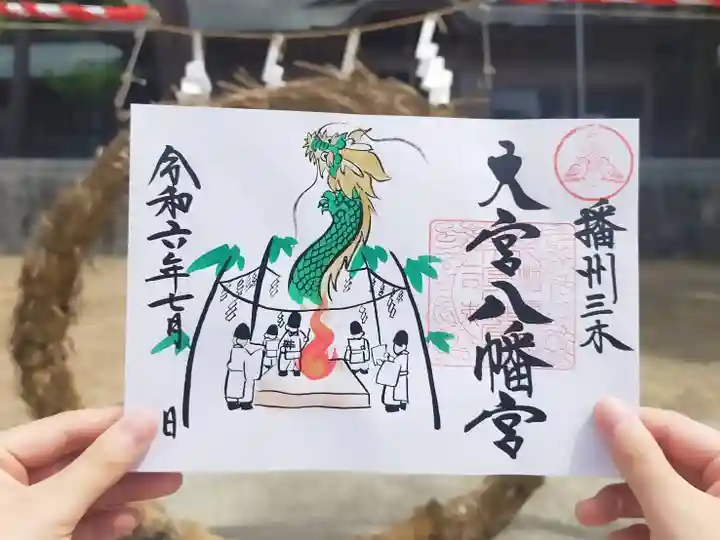 播州三木
大宮八幡宮
令和六年七月　日